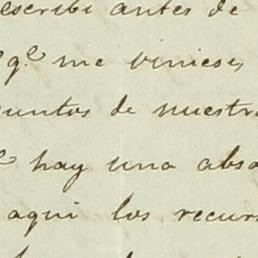 escribi antes de
q.e me vinieses
puntos de nuestr
hay una abso
aqui los recurs